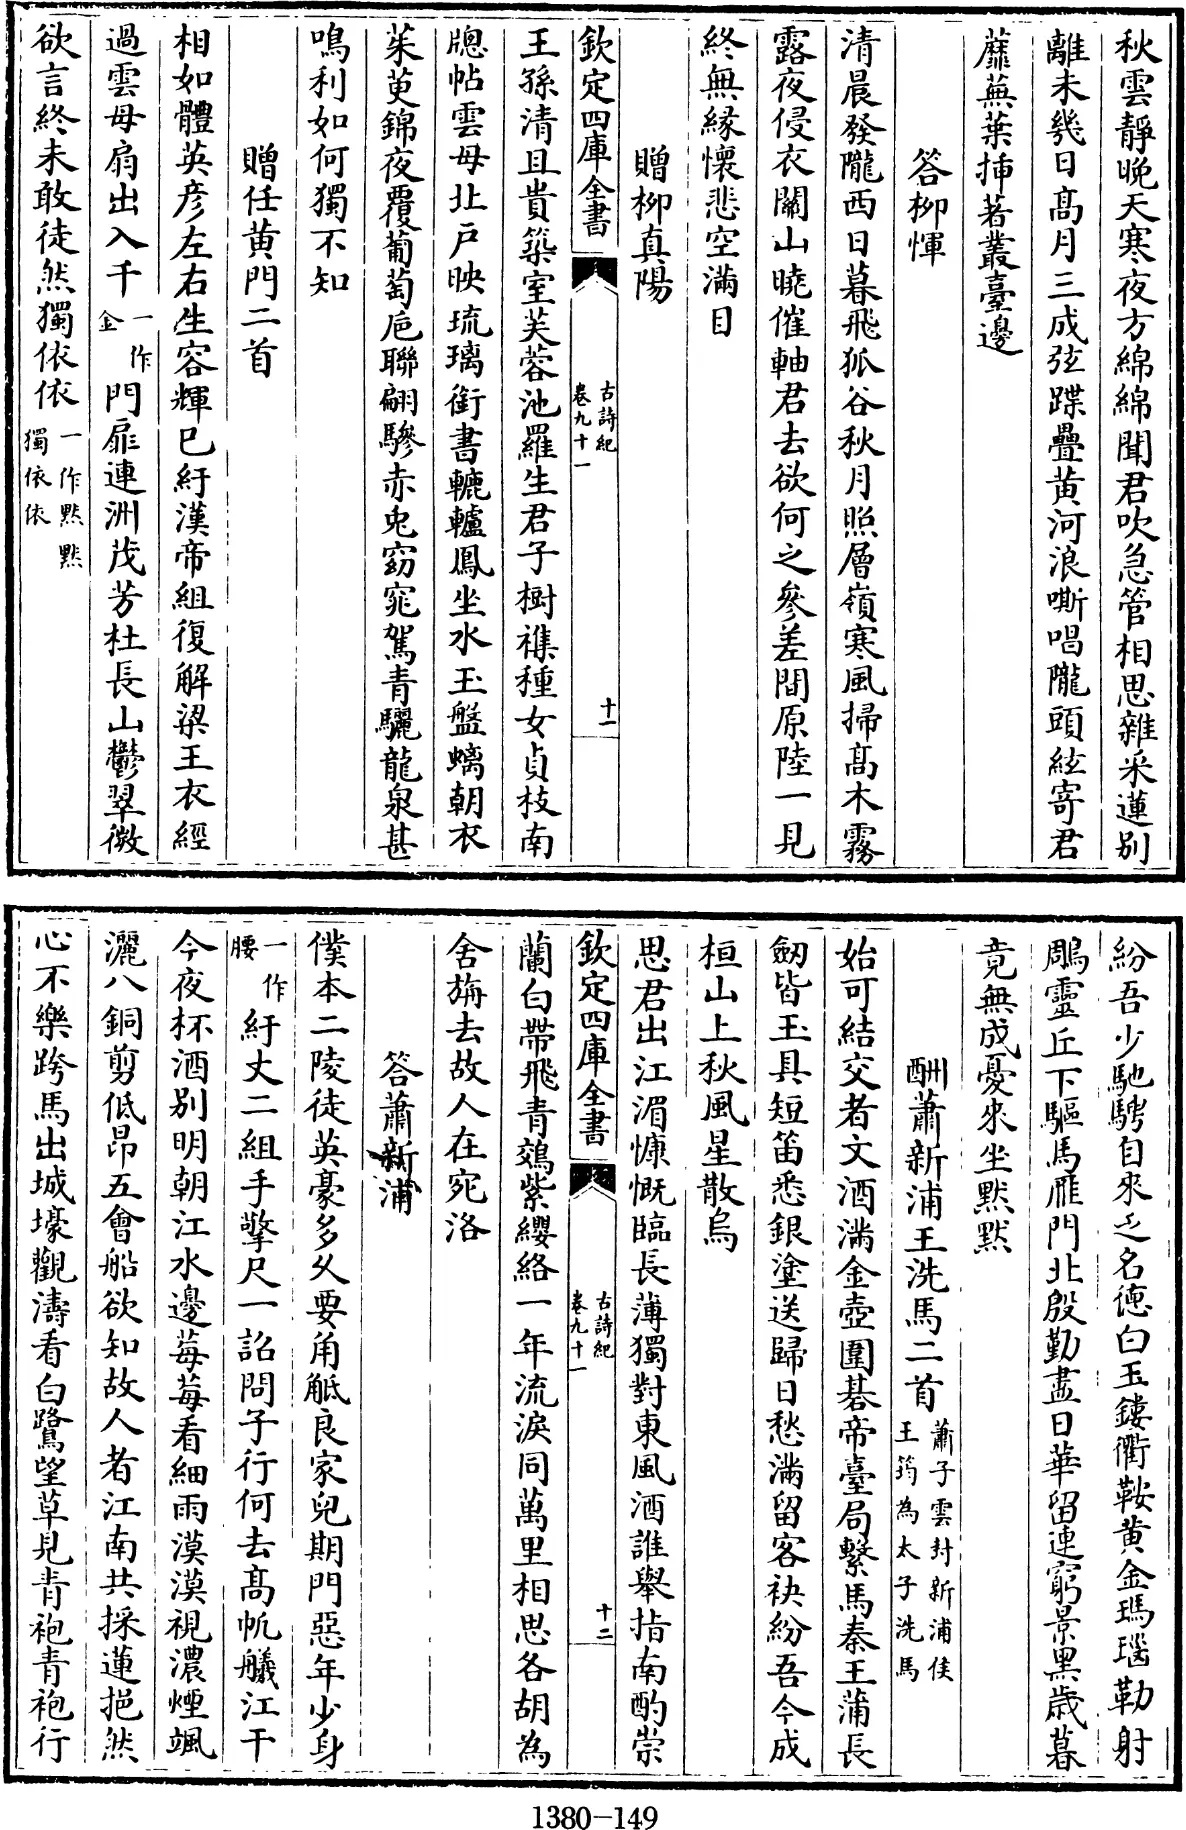 秋雲靜晩天寒夜方綿綿聞君吹急管相思雜采蓮别
離未幾日髙月三成弦蹀疊黄河浪嘶唱隴頭絃寄君
蘼蕪葉揷著叢臺邊
答柳惲
清晨發隴西日暮飛狐谷秋月照層嶺寒風掃髙木霧
露夜侵衣關山曉催軸君去欲何之參差間原陸一見
終無緣懷悲空滿目
贈柳真陽
欽定四庫全書
古詩紀
卷九十一
十一
王孫清且貴築室芙蓉池羅生君子樹襍種女貞枝南
牕帖雲母北戸映琉璃銜書轆轤鳳坐水玉盤螭朝衣
茱萸錦夜覆葡萄巵聯翩驂赤兎窈窕駕青驪龍泉甚
鳴利如何獨不知
贈任黄門二首
相如體英彦左右生容輝已紆漢帝組復解梁王衣經
過雲母扇出入千一作金門扉連洲茂芳杜長山鬱翠微
欲言終未敢徒然獨依依一作黙黙獨依依
紛吾少馳騁自來乏名德白玉鏤衢鞍黄金瑪瑙勒射
鵰靈丘下驅馬雁門北殷勤盡日華留連窮景黒歳暮
竟無成憂來坐黙黙
酬蕭新浦王洗馬二首蕭子雲封新浦侯王筠為太子洗馬
始可結交者文酒滿金壺圍碁帝臺局繫馬秦王蒲長
劒皆玉具短笛悉銀塗送歸日愁滿留客袂紛吾今成
桓山上秋風星散烏
思君出江湄慷慨臨長薄獨對東風酒誰舉指南酌崇
欽定四庫全書
古詩紀
卷九十一
十二
蘭白帶飛青鵁紫纓絡一年流淚同萬里相思各胡為
舍旃去故人在宛洛
答蕭新浦
僕本二陵徒英豪多久要角觝良家兒期門惡年少身
一作腰紆丈二組手擎尺一詔問子行何去髙帆艤江干
今夜杯酒别明朝江水邊莓莓看細雨漠漠視濃煙颯
灑八銅剪低昂五會船欲知故人者江南共採蓮挹然
心不樂跨馬出城壕觀濤看白鷺望草見青袍青袍行
1380-149